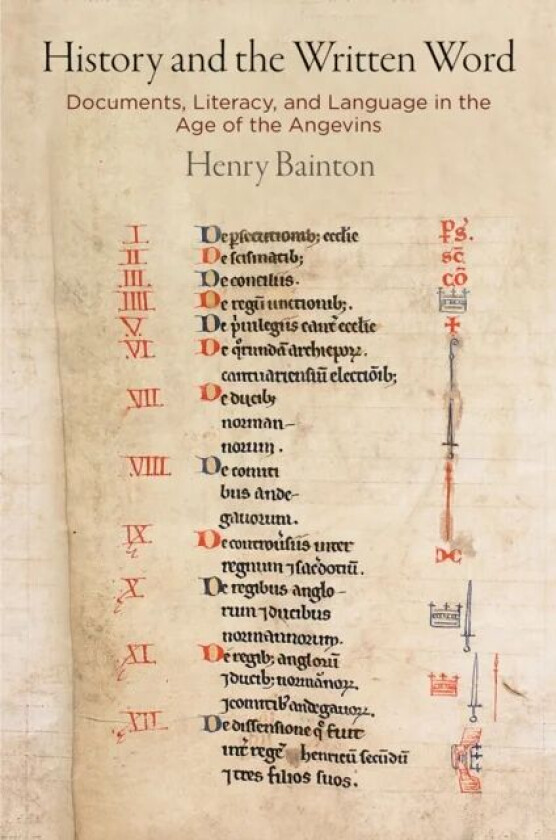 History and the Written Word
Documents, Literacy, and Language in the
Age of the Angevins
Henry Bainton
I. De ꝑsecutionib; ecclie ps.
II De scismatib; sc̄
III. De conciliis. cō
IIII De regū unctionib;.
V. De p̍uilegiis cant̍ ecclie
VI De q̍rundā archiepoꝝ.
cantuariensiū electiōib;
VII De ducib;
norman-
norum.
VIII De comiti
bus ande-
gauorum.
IX De controu̍siis inter
regnum ⁊ sac̍dotiū.
X De regibus anglo-
rum ⁊ ducibus
normannorum.
XI De regib; anglorū
⁊ ducib; normānoꝝ.
⁊ comitib̍ andegauoꝝ.
XII De dissensione q̄ fuit
int̍ regē henricū secūdū
⁊ tres filios suos.